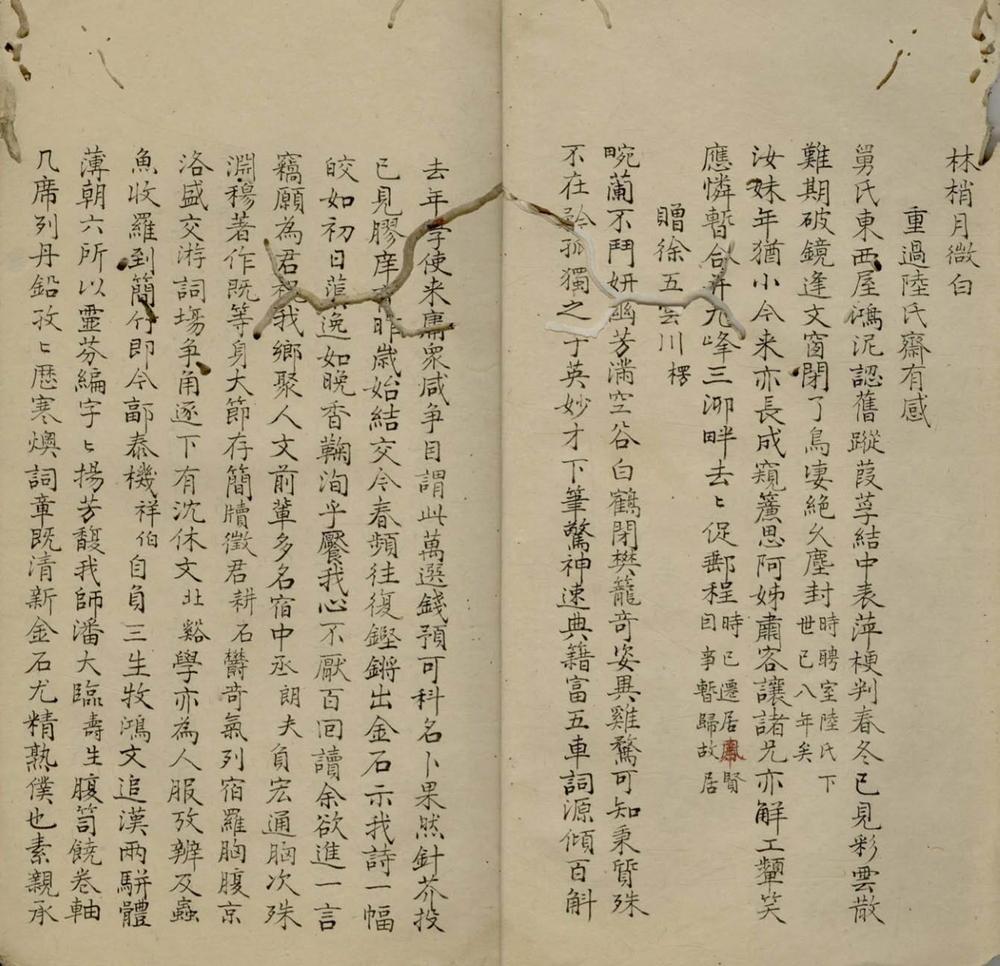 林梢月微白
重過陸氏齋有感
舅氏東西屋鴻泥認舊蹤葭莩結中表萍梗判春冬已見彩雲散
難期破鏡逢文窗閉了鳥凄絶久塵封時聘室陸氏下世已八年矣
汝妹年猶小今来亦長成窺簾思阿姊肅容讓諸兄亦解工顰笑
應憐暫合并九峰三泖畔去〻促郵程時已遷居鳳賢因事暫歸故居
贈徐五雲川楞
畹蘭不鬥妍幽芳滿空谷白鶴閉樊籠奇姿異雞鶩可知秉質殊
不在矜孤獨之子于英妙才下筆驚神速典籍富五車詞源傾百斛
去年學使来庸衆咸争目謂此萬選錢預可科名卜果然針芥投
已見膠庠昨歲始結交今春頻往復鏗鏘出金石示我詩一幅
皎如初日蕖逸如晚香鞠洵乎饜我心不厭百回讀余欲進一言
竊願為君祝我鄉聚人文前輩多名宿中丞朗夫負宏通胸次殊
淵穆著作既等身大節存簡牘徵君耕石鬱奇氣列宿羅胸腹京
洛盛交游詞場争角逐下有沈休文北谿學亦為人服攷辨及蟲
魚收羅到簡竹即今鄗泰機祥伯自負三生牧鴻文追漢兩駢體
薄朝六所以靈芬編字〻揚芳馥我師潘大臨壽生腹笥饒卷軸
几席列丹鉛孜〻歷寒燠詞章既清新金石尤精熟僕也素親承